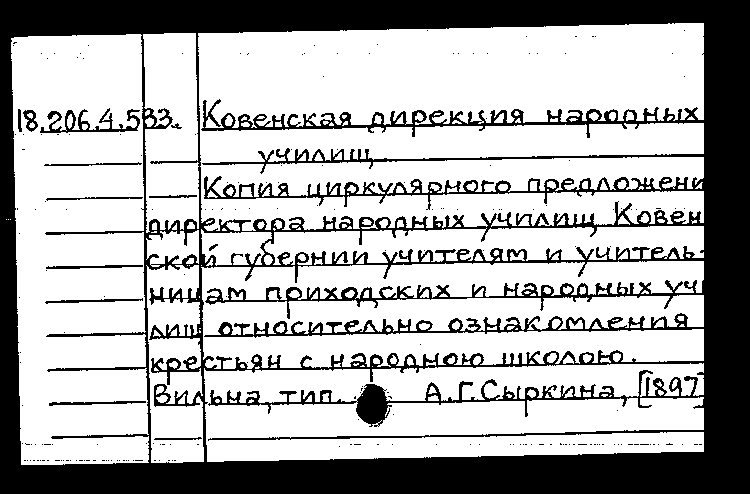 18.206.4.533. Ковенская дирекция народных
училищ
Копия циркулярного предложени
директора народных училищ Ковен
ской губернии учителям и учитель-
ницам приходских и народных учи
лищ относительно ознакомления
крестьян с народною школою.
Вильна, тип. А.Г.Сыркина, [1897]